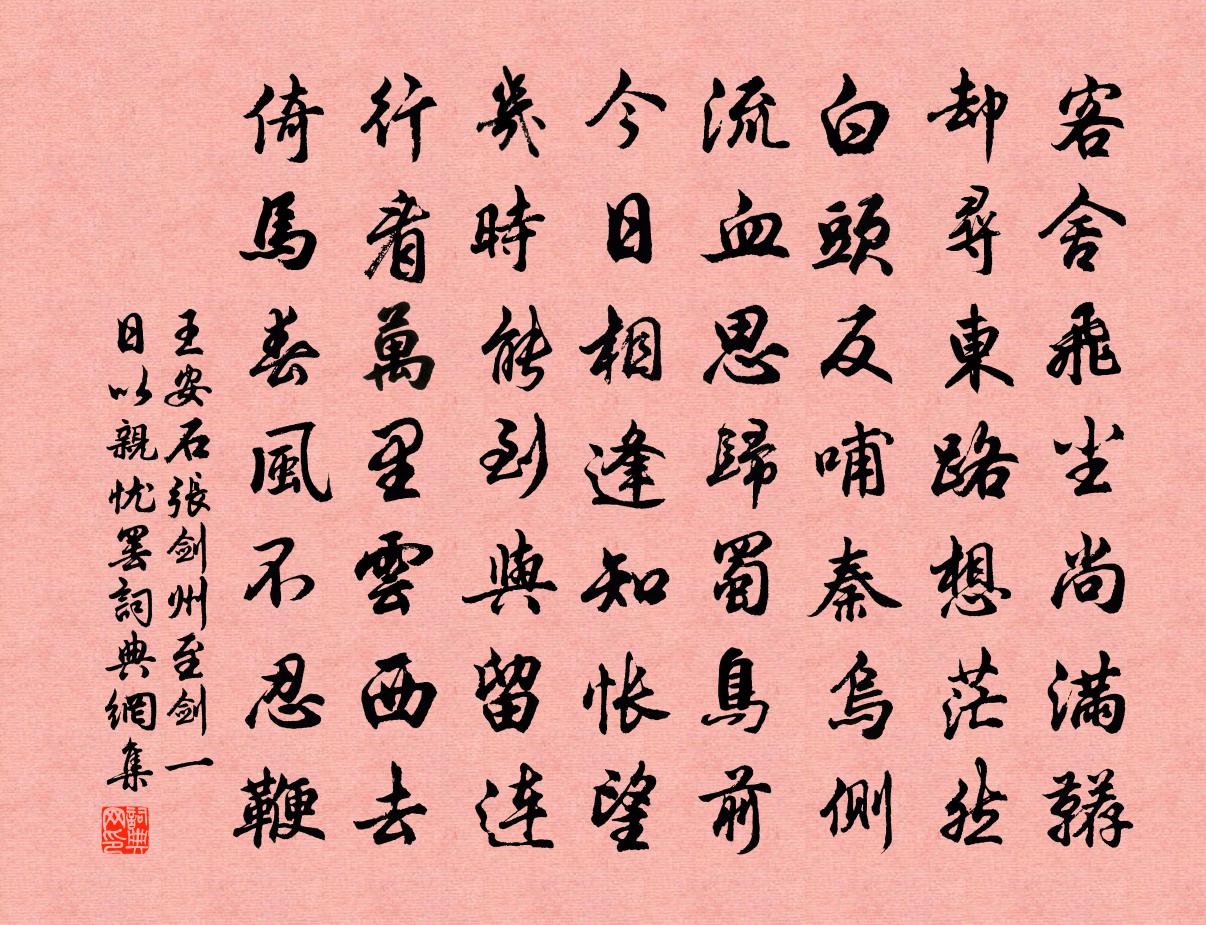 客舍飛塵尚滿韉
却尋東路想茫然
白頭反哺秦烏側
流血思歸蜀鳥前
今日相逢知悵望
幾時能到與留連
行看萬里雲西去
倚馬春風不忍鞭
王安石張剑州至剑一
日以親忧罢詞典網集
詞典网印